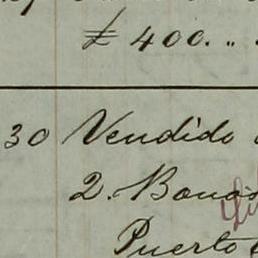 £ 400. „
30 Vendido
2. Bonos
Puerto